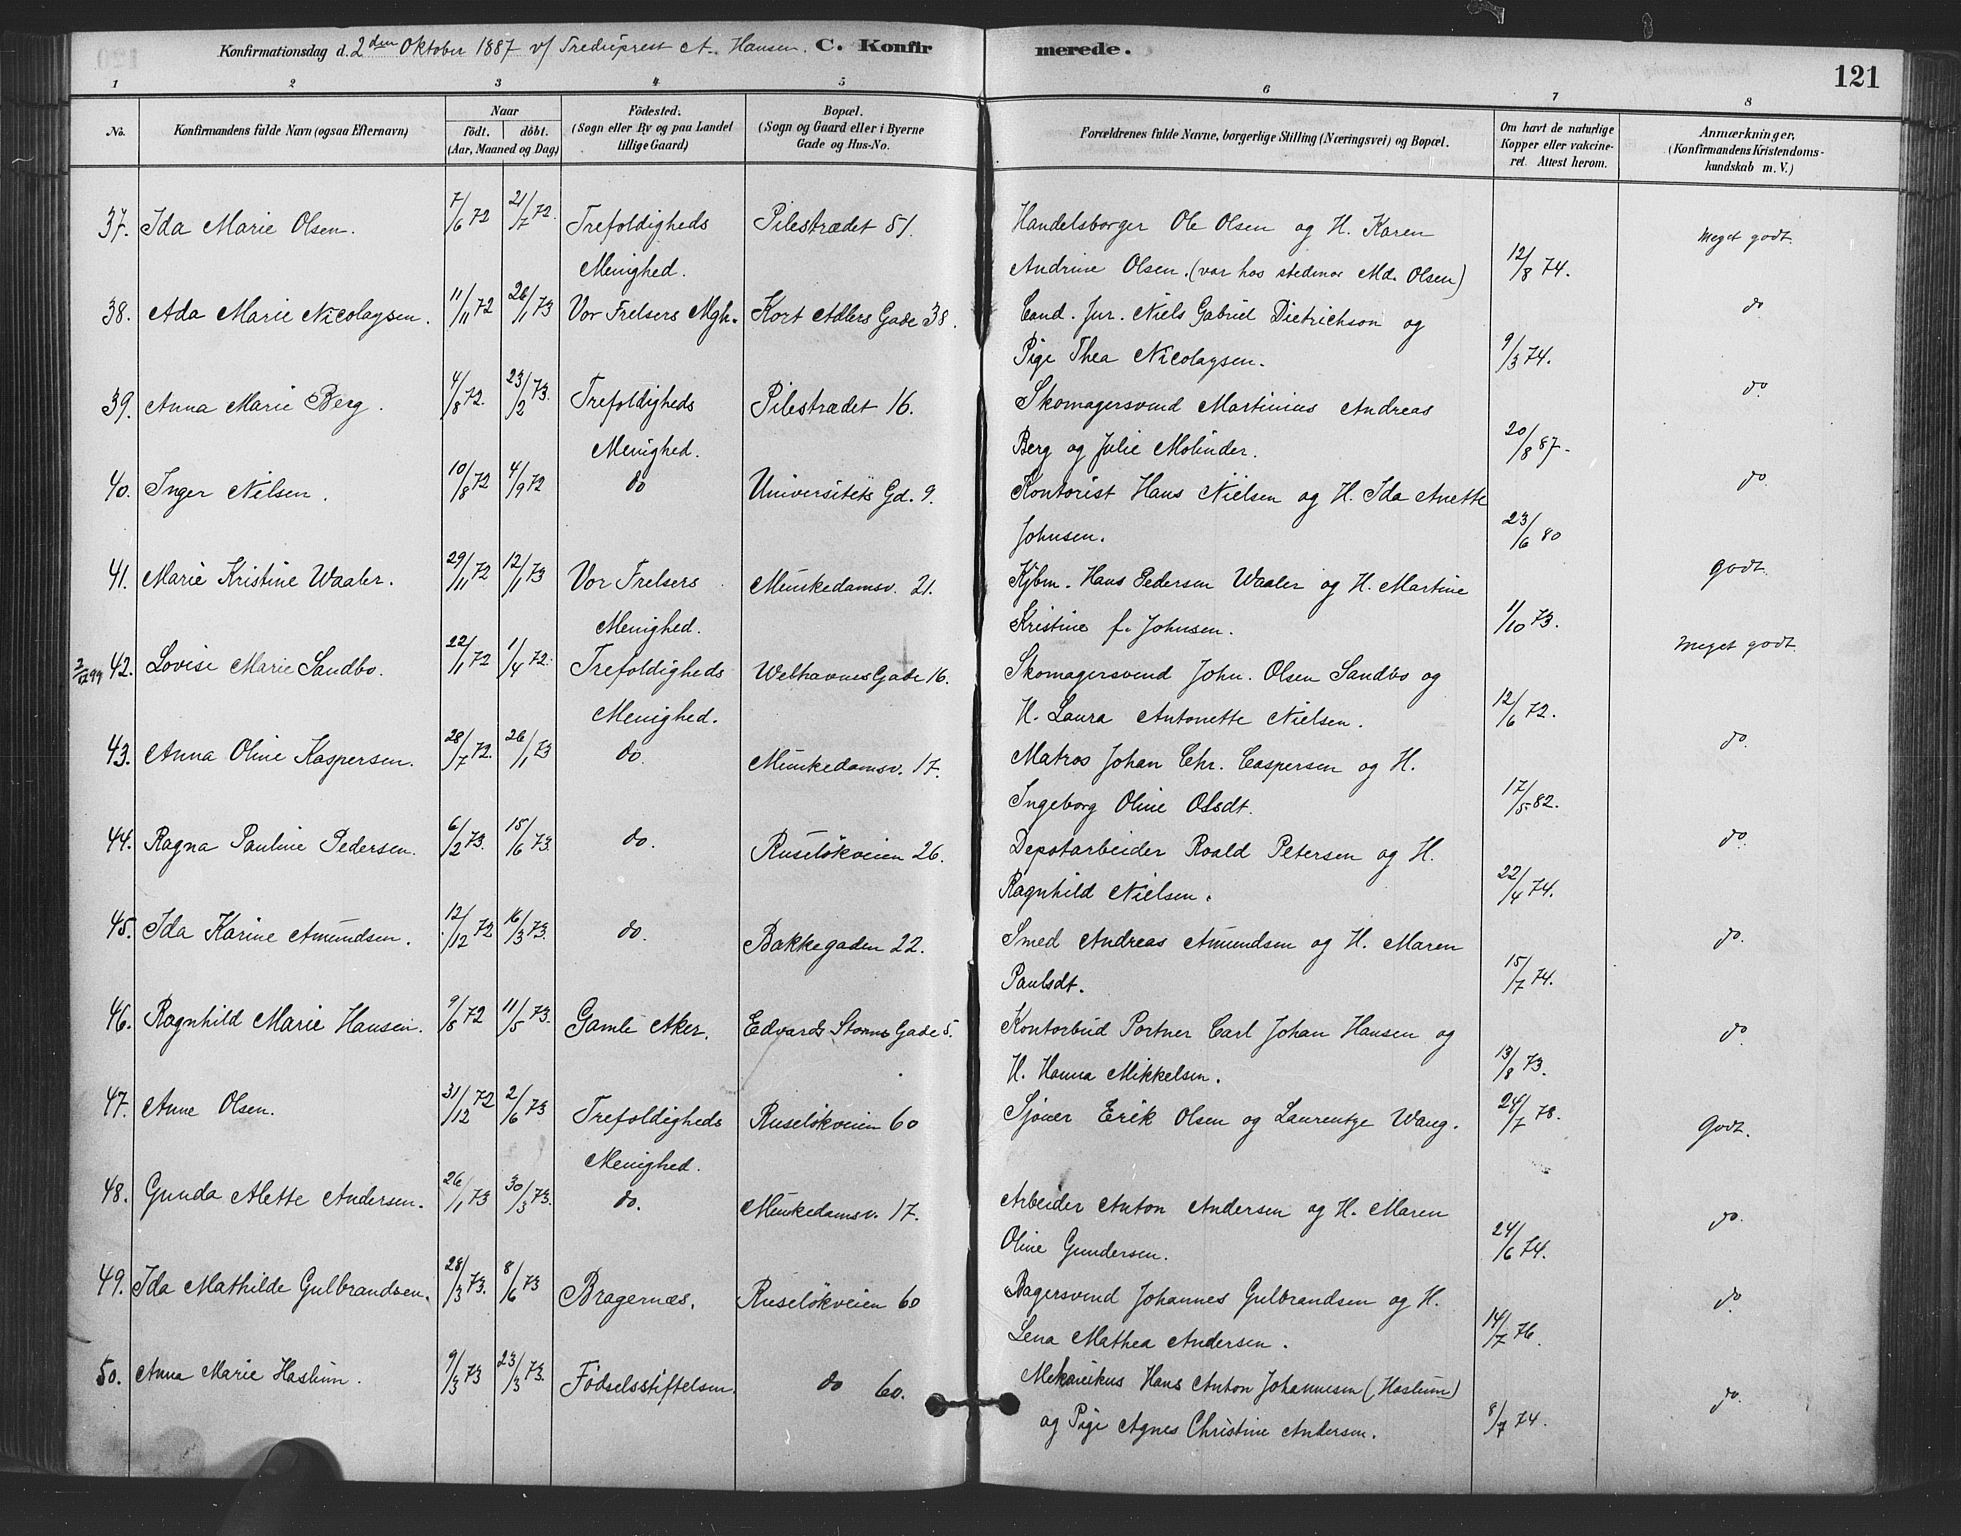 Konfirmationsdag d. 2den Oktober 1887 v/ Tredieprest A. Hansen. C. Konfirmerede.
121
1 2 3 4 5 6 7 8
No. Konfirmandens fulde Navn (ogsaa Efternavn) Naar født. døbt. (Aar, Maaned og Dag) Fødested. (Sogn eller By og paa Landet tillige Gaard) Bopæl. (Sogn og Gaard eller i Byerne Gade og Hus-No. Forældrenes fulde Navne, borgerlige Stilling (Næringsvei) og Bopæl. Om havt de naturlige Kopper eller vakcineret. Attest herom. Anmærkninger, (Konfirmandens Kristendomskundskab m. V.)
37. Ida Marie Olsen. 7/6 72 21/7 72. Trefoldigheds Pilestrædet 51. Handelsborger Ole Olsen og H. Karen Meget godt.
Menighed. Andrine Olsen. (var hos stedmor Md. Olsen) 12/8 74.
38. Ada Marie Nicolaysen. 11/11 72 26/1 73 Vor Frelsers Mgh. Kort Adlers Gade 38. Cand. Jur. Niels Gabriel Dietrichson og do
Pige Thea Nicolaysen. 9/3 74.
39. Anna Marie Berg. 4/8 72. 23/2 73. Trefoldigheds Pilestrædet 16. Skomagersvend Martinius Andreas do
Menighed. Berg og Julie Molinder. 20/8 87.
40. Inger Nilsen. 10/8 72 4/9 72 do Universitets Gd. 9. Kontorist Hans Nielsen og H. Ida Anette do
Johnsen. 23/6 80
41. Marie Kristine Waaler. 29/11 72 12/1 73 Vor Frelsers Munkedamsv. 21. Kjbm. Hans Pedersen Waaler og H. Martine godt.
Menighed. Kristine f. Johnsen. 1/10 73.
42. Lovise Marie Sandbo. 22/1 72 1/4 72. Trefoldigheds Welhavnes Gade 16. Skomagersvend John. Olsen Sandbo og Meget godt.
Menighed. H. Laura Antonette Nielsen. 12/6 72.
43. Anna Oline Kaspersen. 28/7 72. 26/1 73 do. Munkedamsv. 17. Matros Johan Chr. Caspersen og H. do.
Ingeborg Oline Olsdt. 17/5 82.
44. Ragna Pauline Pedersen. 6/2 73. 15/6 73. do. Ruseløkveien 26. Depotarbeider Roald Petersen og H. do.
Ragnhild Nielsen. 22/4 74.
45. Ida Karine Amundsen. 12/12 72 16/3 73. do. Bakkegaden 22. Smed Andreas Amundsen og H. Maren do.
Paulsdt. 15/7 74.
46. Ragnhild Marie Hansen. 9/8 72 11/5 73. Gamle Aker. Edvard Storms Gade 5. Kontorbud Portner Carl Johan Hansen og do.
H. Hanna Mikkelsen. 13/8 73.
47. Anne Olsen. 31/12 72 2/6 73 Trefoldigheds Ruseløkveien 60 Sjøuer Erik Olsen og Laurentze Wang. 24/7 78. Godt.
Menighed.
48. Gunda Alette Andersen. 26/1 73 30/3 73. do. Munkedamsv. 17. Arbeider Anton Andersen og H. Maren do.
Oline Gundersen. 24/6 74.
49. Ida Mathilde Gulbrandsen. 28/3 73. 8/6 73 Bragernæs. Ruseløkveien 60 Bagersvend Johannes Gulbrandsen og H. do.
Lena Mathea Andersen. 14/7 76.
50. Anna Marie Haslum. 9/3 73 23/3 73. Fødselsstiftelsen. do 60. Mekanikus Hans Anton Johannesen (Haslum) do.
og Pige Agnes Christine Andersen. 8/7 74.